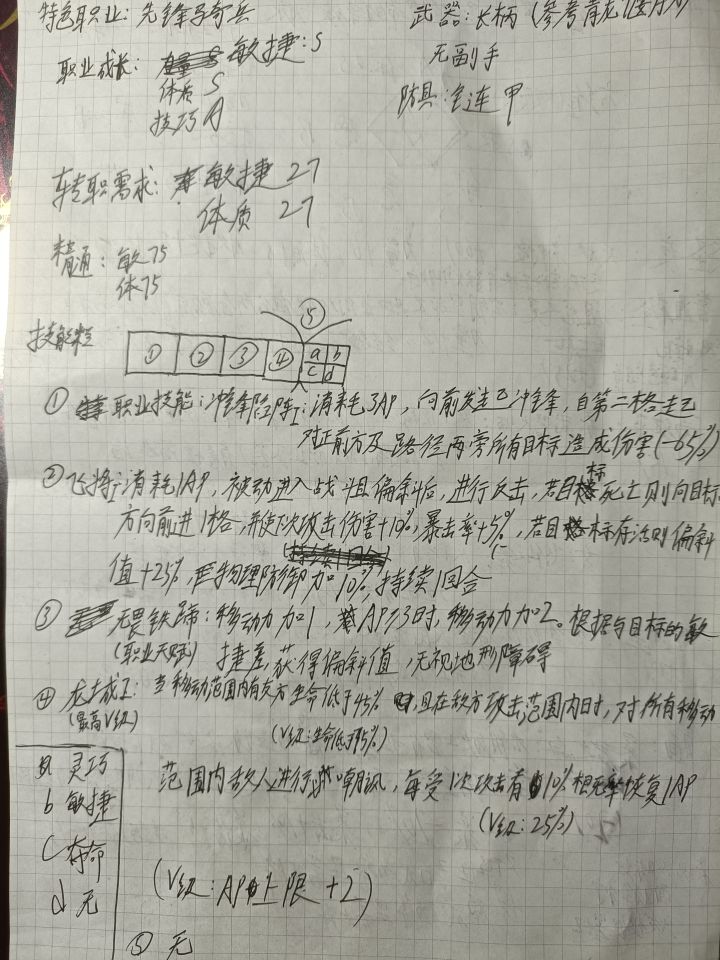 特色职业：先锋弓奇兵
武器：长柄（参考青龙偃月刀）
职业成长：敏捷：S
无副手
体质 S
防具：链甲
技巧 A
转职需求：敏捷 27
体质 27
精通：敏75
体75
⑤
技能栏 ① ② ③ ④ a b
c d
① 职业技能：冲锋陷阵I：消耗3AP，向前发起冲锋，自第二格起
对正前方及路径两旁所有目标造成伤害(-65%)
② 飞将I：消耗1AP，被动进入战斗且偏斜后，进行反击，若目标死亡则向目标
方向前进1格，并使下次攻击伤害+10%，暴击率+5%，若目标存活则偏斜
值+25%，物理防御加10%，持续1回合
③ 无畏铁蹄：移动力加1，AP≥3时，移动力加2。根据与目标的敏
(职业天赋) 捷差，获得偏斜值，无视地形障碍
④ 龙城I：当移动范围内有友方生命低于45%，且在敌方攻击范围内时，对所有移动
(最高V级) (V级：生命低于95%)
a 灵巧 范围内敌人进行嘲讽，每受1次攻击有10%概率恢复1AP
b 敏捷 (V级：25%)
c 夺命
d 无 (V级：AP上限+2)
⑤ 无